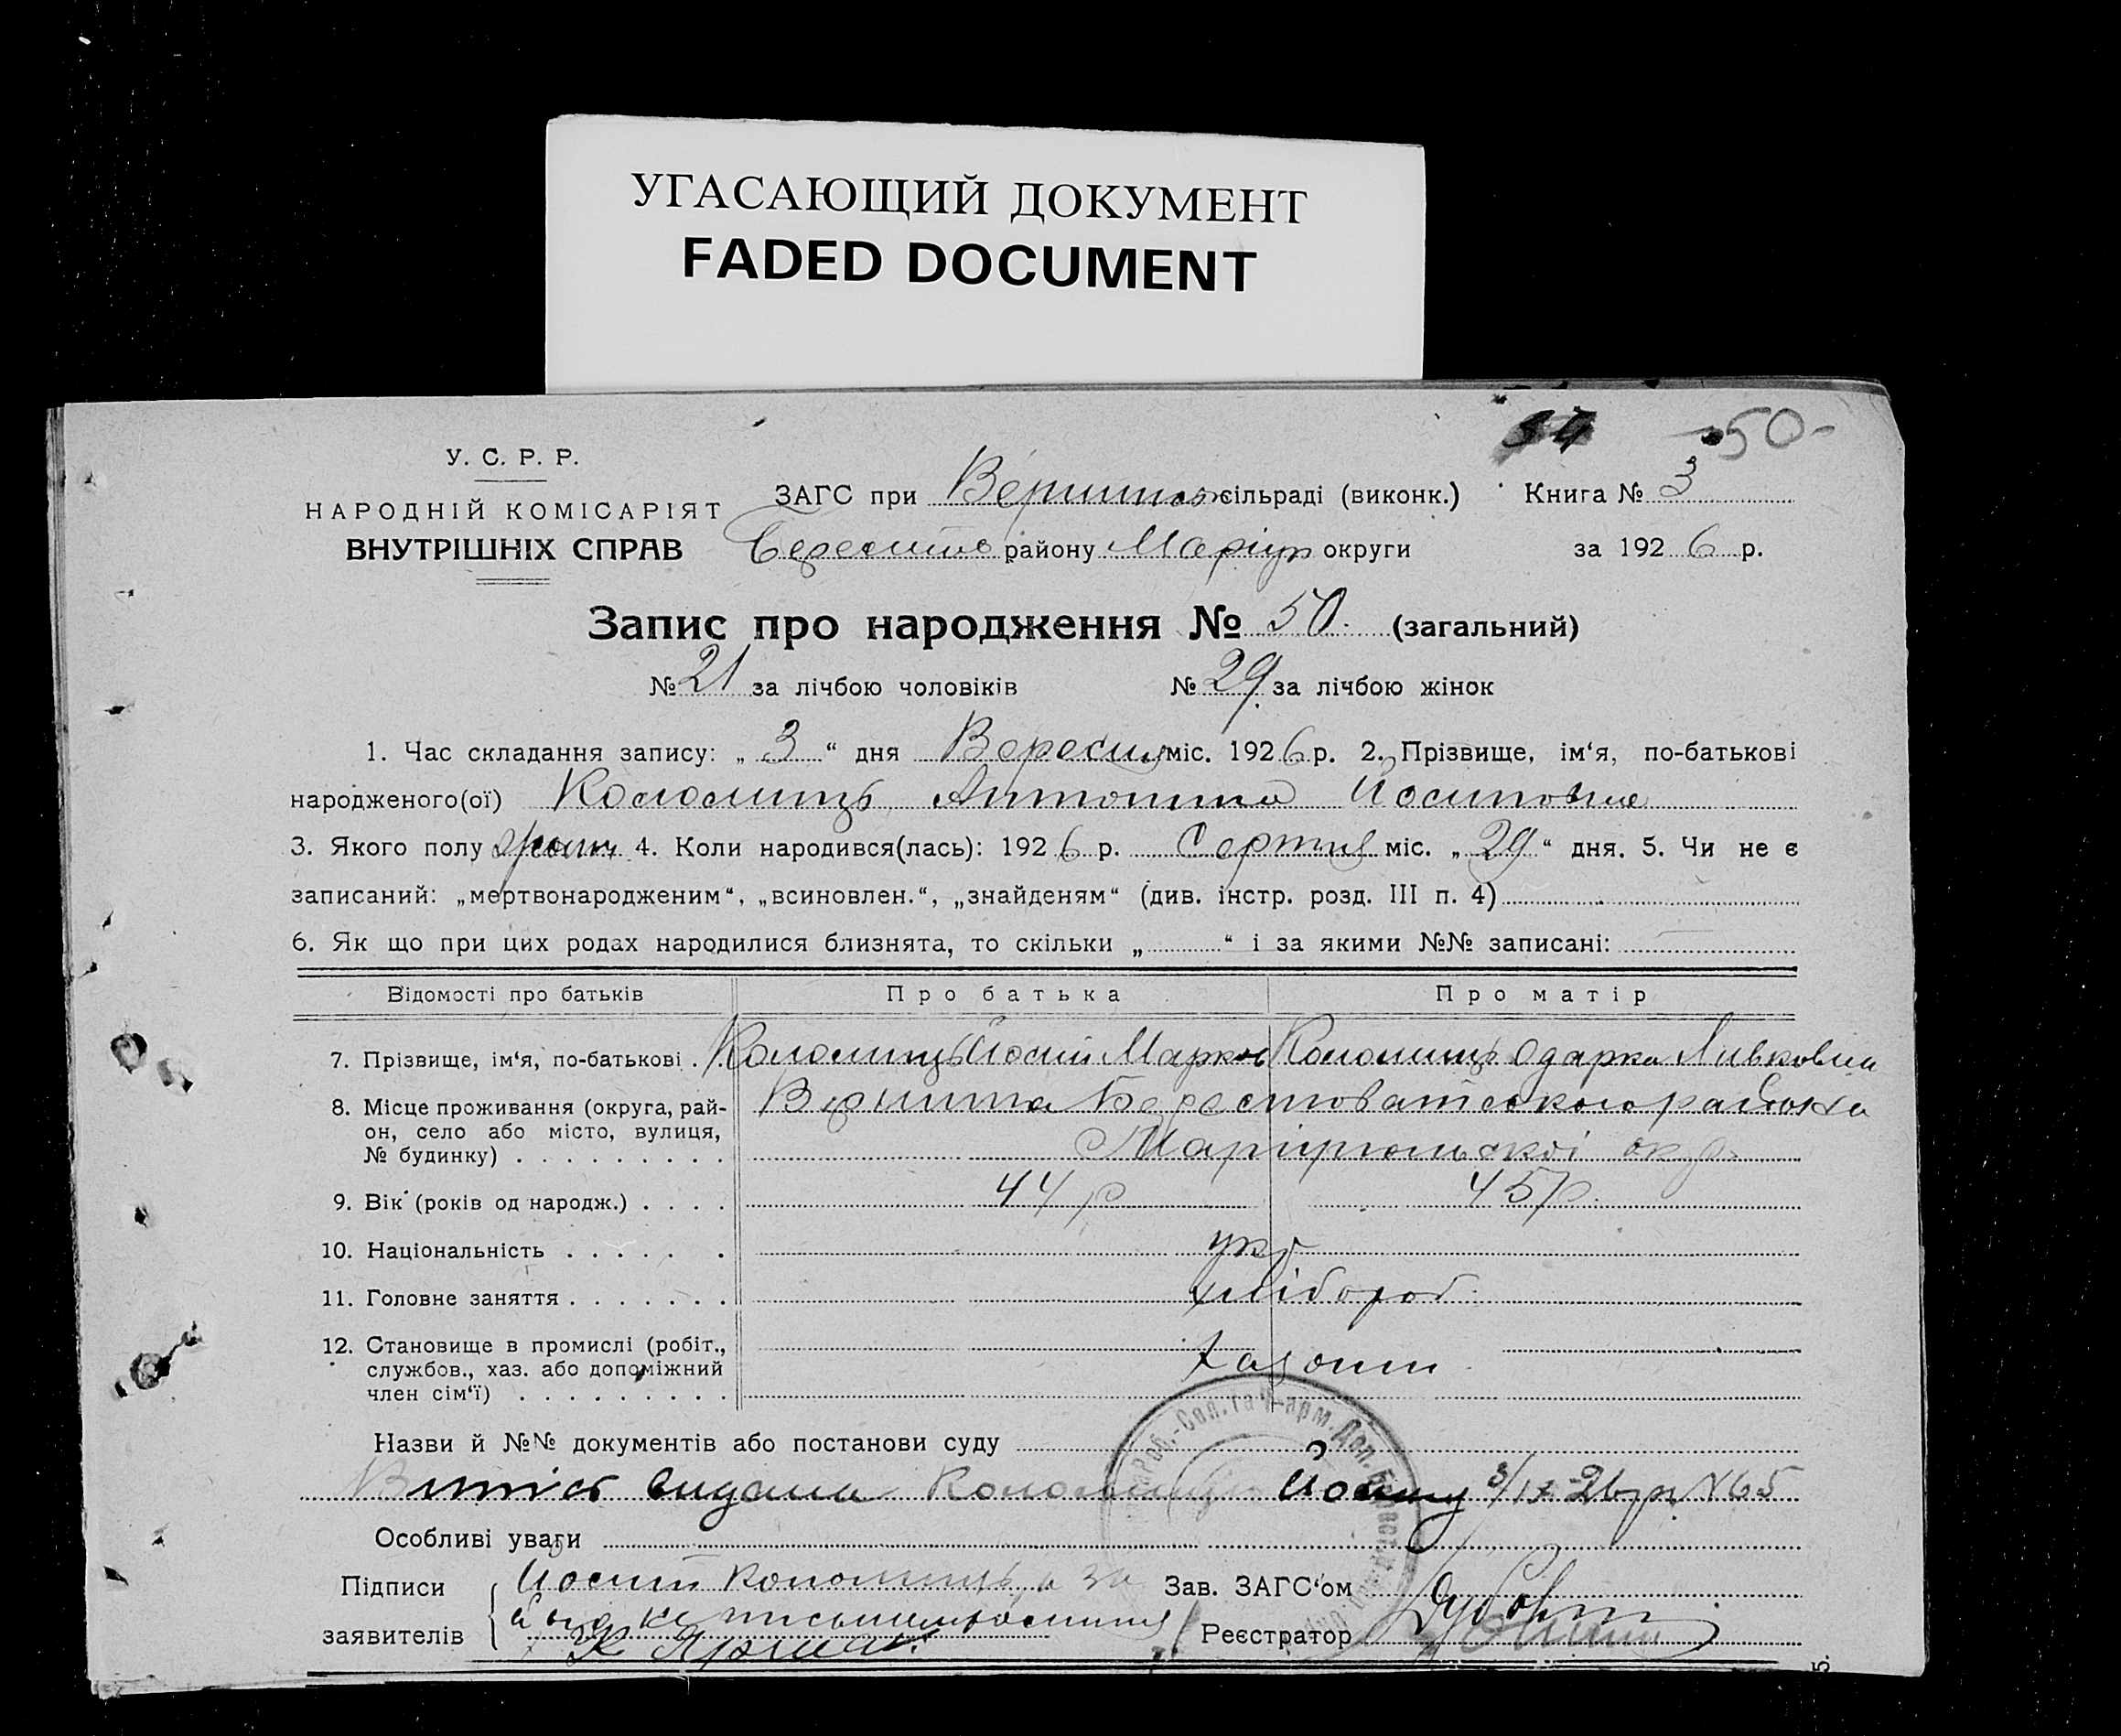 УГАСАЮЩИЙ ДОКУМЕНТ
FADED DOCUMENT
50-
У. С. Р. Р.
НАРОДНІЙ КОМІСАРІЯТ
ВНУТРІШНІХ СПРАВ
ЗАГС при сільраді (виконк.) Книга № 3
району Маріуп округи за 1926 р.
Запис про народження № 50. (загальний)
№ 21 за лічбою чоловіків № 29. за лічбою жінок
1. Час складання запису: „ 3 “ дня Вересня міс. 1926 р. 2. Прізвище, ім‘я, по-батькові
народженого(ої) Коломиець Антонина Йосиповна
3. Якого полу жіноч 4. Коли народився(лась): 1926 р. Серпня міс. „ 29 “ дня. 5. Чи не є
записаний: „мертвонародженим“, „всиновлен.“, „знайденям“ (див. інстр. розд. III п. 4)
6. Як що при цих родах народилися близнята, то скільки „ “ і за якими №№ записані:
Відомості про батьків Про батька Про матір
7. Прізвище, ім‘я, по-батькові . . Коломиець Йосип Марков Коломиець Одарка Ливковна
8. Місце проживання (округа, рай-
он, село або місто, вулиця,
№ будинку) . . . . . . . . .
Вершина Берестоватського района
Маріупольскоі окр.
9. Вік (років од народж.) . . . . 44 р 45 р.
10. Національність . . . . . . укр
11. Головне заняття . . . . . . . хлібороб.
12. Становище в промислі (робіт.,
службов., хаз. або допоміжний
член сім‘ї) . . . . . . . . .
хазоин
Назви й №№ документів або постанови суду
Витяг видана Коломийцю Йосипу 3/IX 26 р. №65
Особливі уваги
Підписи
заявителів
Йосип Коломиець а за
Зав. ЗАГС‘ом
Реєстратор